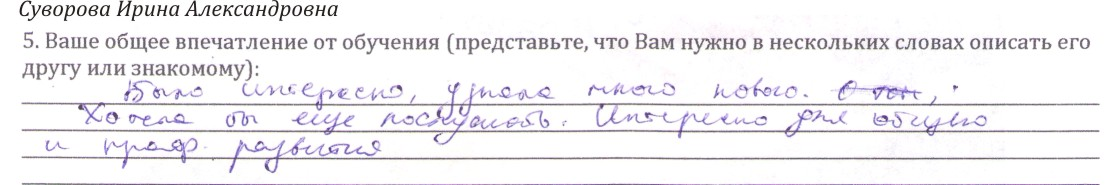 Суворова Ирина Александровна
5. Ваше общее впечатление от обучения (представьте, что Вам нужно в нескольких словах описать его
другу или знакомому):
Было интересно, узнала много нового.
Хотела бы еще послушать. Интересно для общего
и проф. развития